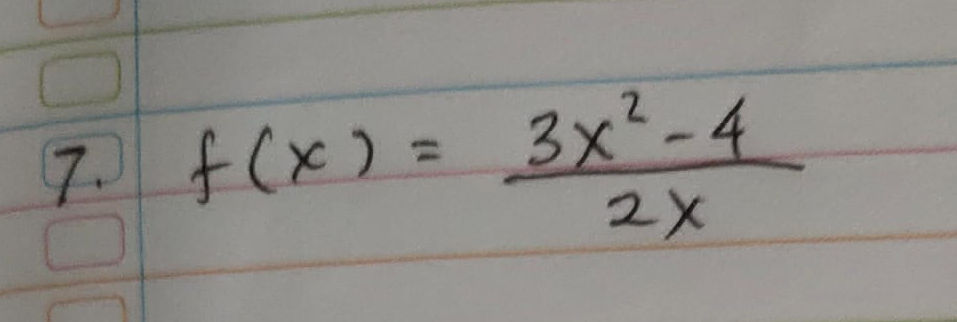 7. f(x) = \frac{3x^2-4}{2x}